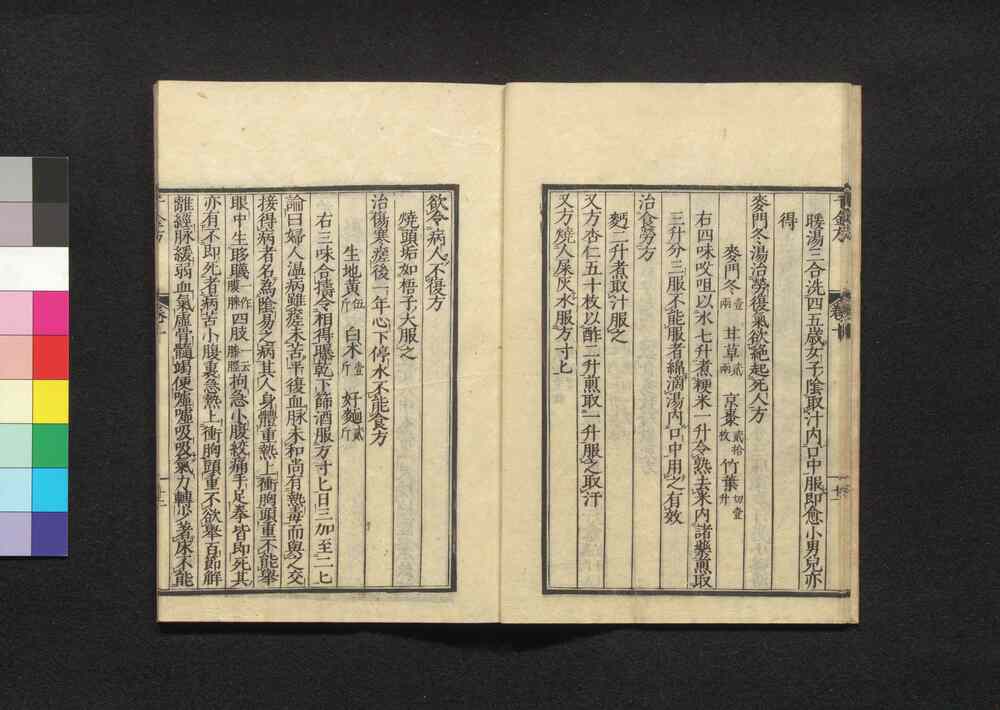 暖湯三合洗四五歳女子陰取汁内口中服即愈小男兒亦
得
麥門冬湯治勞復氣欲絶起死人方
麥門冬壹兩 甘草貳兩 京棗貳拾枚 竹葉切壹升
右四味㕮咀以水七升煮粳米一升令熟去米内諸藥煎取
三升分三服不能服者綿滴湯内口中用之有效
治食勞方
麪二升煮取汁服之
又方杏仁五十枚以酢二升煎取一升服之取汗
又方燒人屎灰水服方寸匕
欲令病人不復方
燒頭垢如梧子大服之
治傷寒瘥後一年心下停水不能食方
生地黄伍斤 白朮壹斤 好麵貳斤
右三味合擣令相得曝乾下篩酒服方寸匕日三加至二匕
論曰婦人温病雖瘥未苦平復血脉未和尚有熱毒而與之交
接得病者名爲陰易之病其人身體重熱上衝胸頭重不能舉
眼中生眵䁾四肢拘急小腹㽱痛手足拳皆即死其
亦有不即死者病苦小腹裏急熱上衝胸頭重不欲舉百節解
離經脉緩弱血氣虚骨髓竭便嘘嘘吸吸氣力轉少著床不能